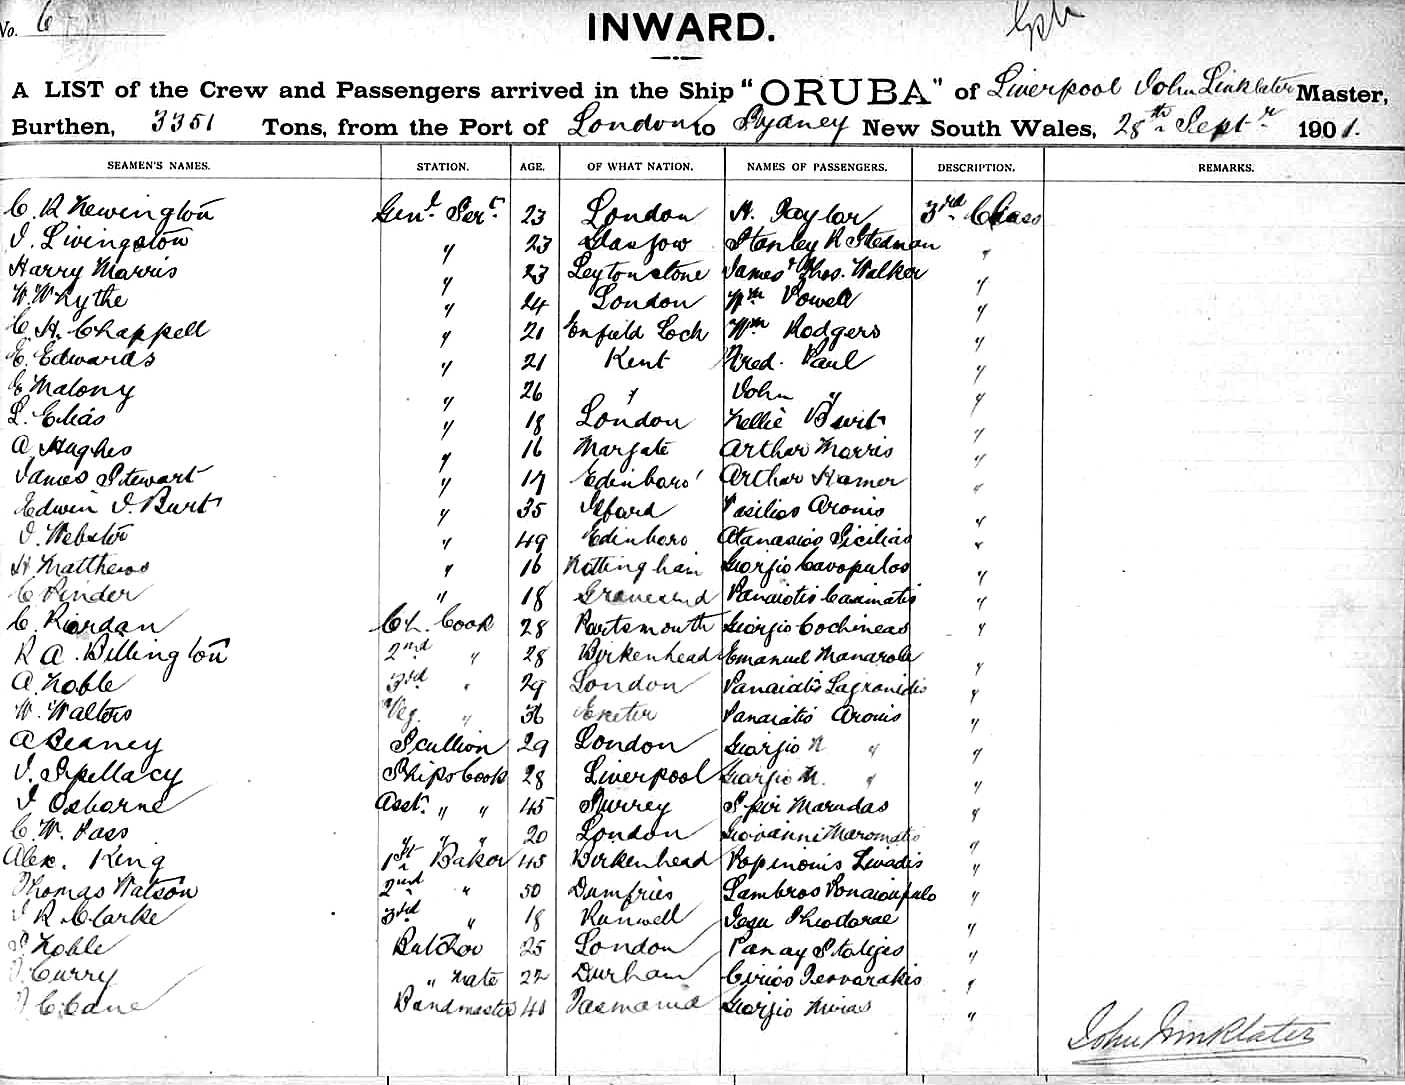 No. 6
INWARD.
A LIST of the Crew and Passengers arrived in the Ship "ORUBA" of Liverpool John Linklater Master,
Burthen, 3351 Tons, from the Port of London to Sydney New South Wales, 28th Septr 1901.
SEAMEN'S NAMES. STATION. AGE. OF WHAT NATION. NAMES OF PASSENGERS. DESCRIPTION. REMARKS.
C. R Newington Genl. Sert. 23 London H. Taylor 3rd Class
J. Livingston " 23 Glasgow Stanley R Stedman "
Harry Morris " 23 Leytonstone James Thos. Walker "
W. W Kythe " 24 London Wm Powell "
C. H. Chappell " 21 Enfield Lock Wm Rodgers "
E. Edwards " 21 Kent Fred. Paul "
E Malony " 26 " John " "
L. Elias " 18 London Nellie Burt "
A Hughes " 16 Margate Arthur Morris "
James Stewart " 17 Edinboro' Arthur Hamer "
Edwin J. Burt " 35 Ilford Vasilios Aronis "
J. Webster " 49 Edinboro Atanasios Sicilias "
H Matthews " 16 Nottingham Giorgio Cavopulos "
C Pinder " 18 Gravesend Panaiotis Casimatis "
C. Riordan Ch. Cook 28 Portsmouth Giorgio Cochineas "
R A. Billington 2nd " 28 Birkenhead Emanuel Manarole "
A. Noble 3rd " 29 London Panaiatis Lagronidis "
W. Walters Veg. " 36 Exeter Panaiatis Aronis "
A Beaney Scullion 29 London Giorgio N " "
J. Spellacy Ships Cook 28 Liverpool Giorgio M. " "
J Osborne Asst. " " 45 Surrey Spir Marudas "
C. W. Pass " " " 20 London Giovanni Maromatis "
Alex. King 1st Baker 45 Birkenhead Popinonis Livadis "
Thomas Watson 2nd " 50 Dumfries Lambros Panaioupulo "
J R Clarke 3rd " 18 Runwell Teza Thiodorae "
S Noble Butcher 25 London Panay Staliges "
J. Curry " Mate 22 Durham Cirios Tesvarakis "
J C Cane Bandmaster 40 Tasmania Giorgio Miras "
John Linklater